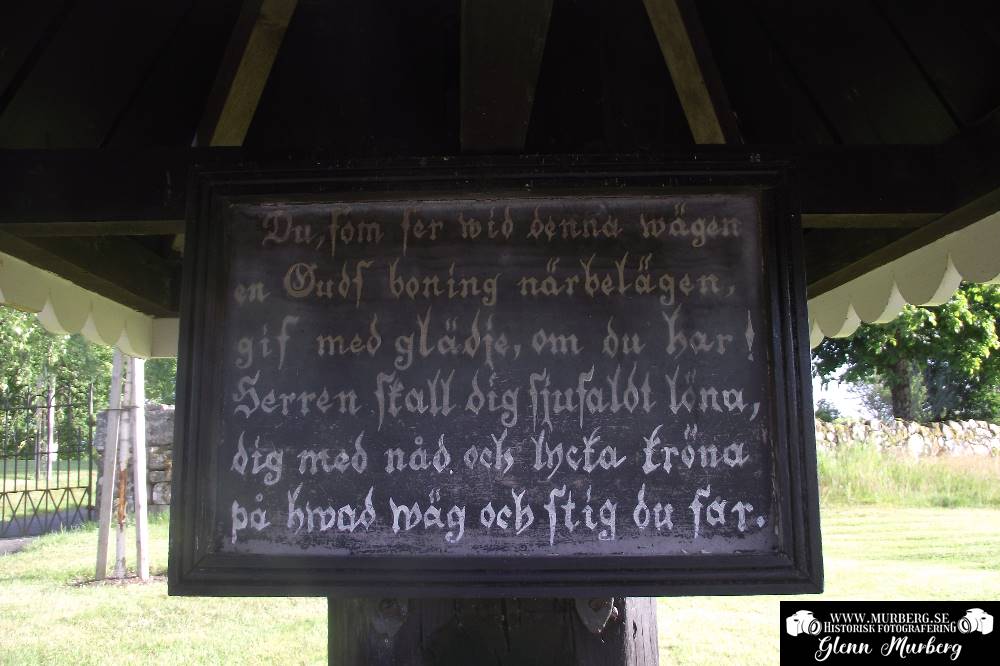 Du, som ser wid denna wägen
en Guds boning närbelägen,
gif med glädje, om du har!
Herren skall dig sjufaldt löna,
dig med nåd och lycka kröna
på hwad wäg och stig du far.
www.murberg.se
Historisk fotografering
Glenn Murberg